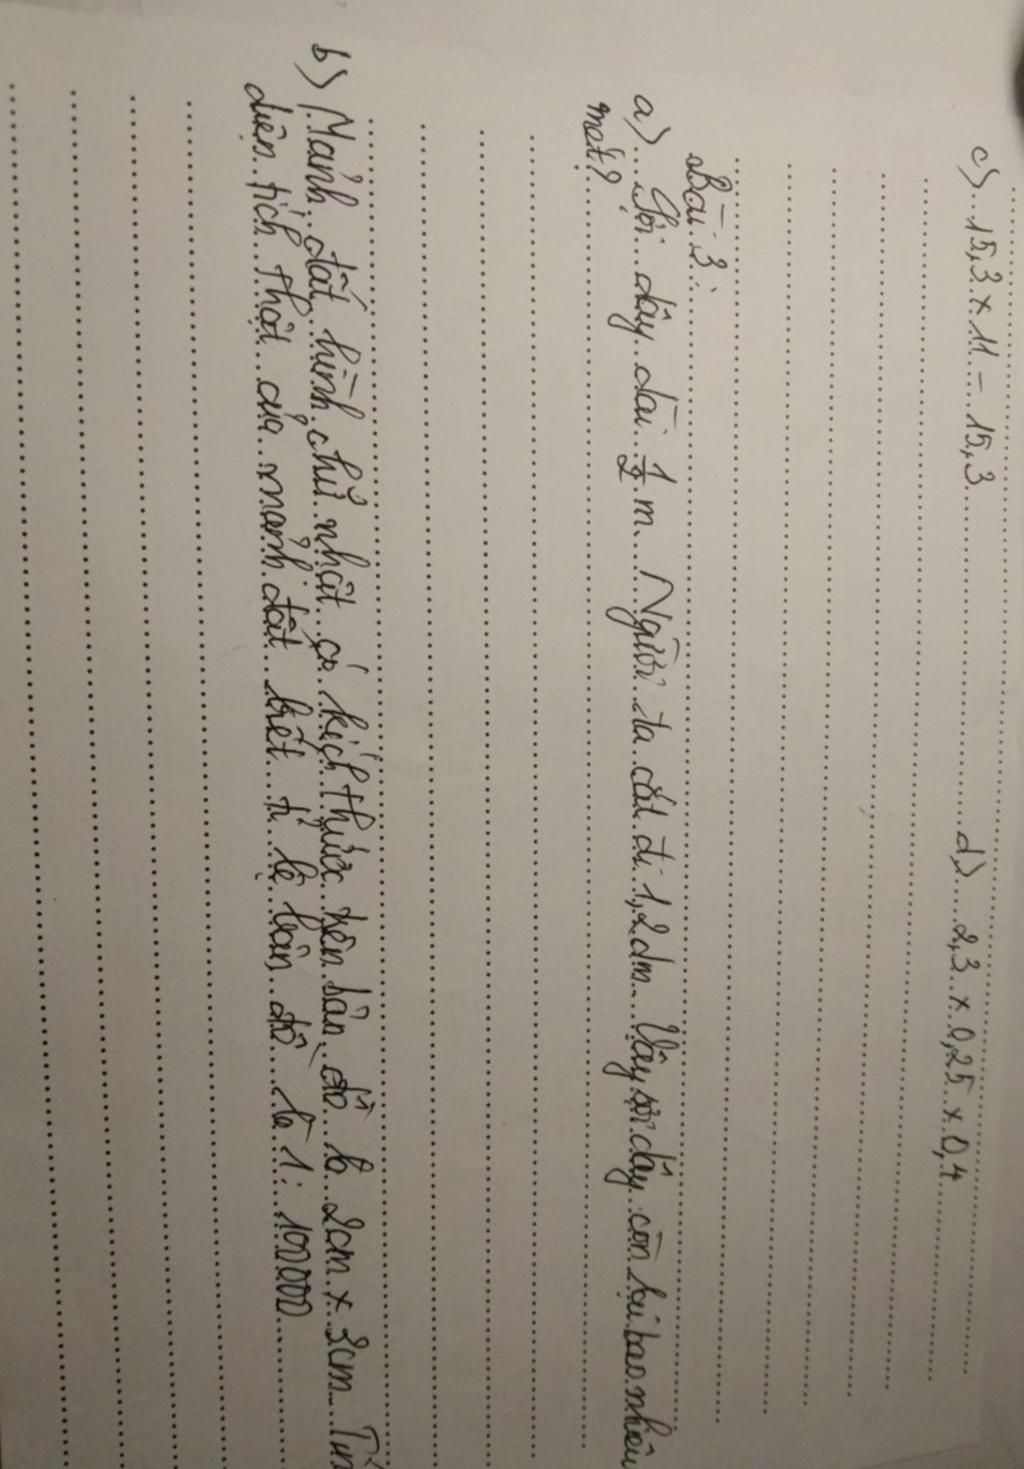 c) 15,3 × 11 - 15,3 d) 2,3 × 0,25 × 0,4
Bài 3:
a) Sợi dây dài 1/2 m. Người ta cắt đi 1,2dm. Vậy sợi dây còn lại bao nhiêu
mét?
b) Mảnh đất hình chữ nhật có kích thước trên bản đồ là 2cm × 3cm. Tính
diện tích thật của mảnh đất biết tỉ lệ bản đồ là 1 : 100000